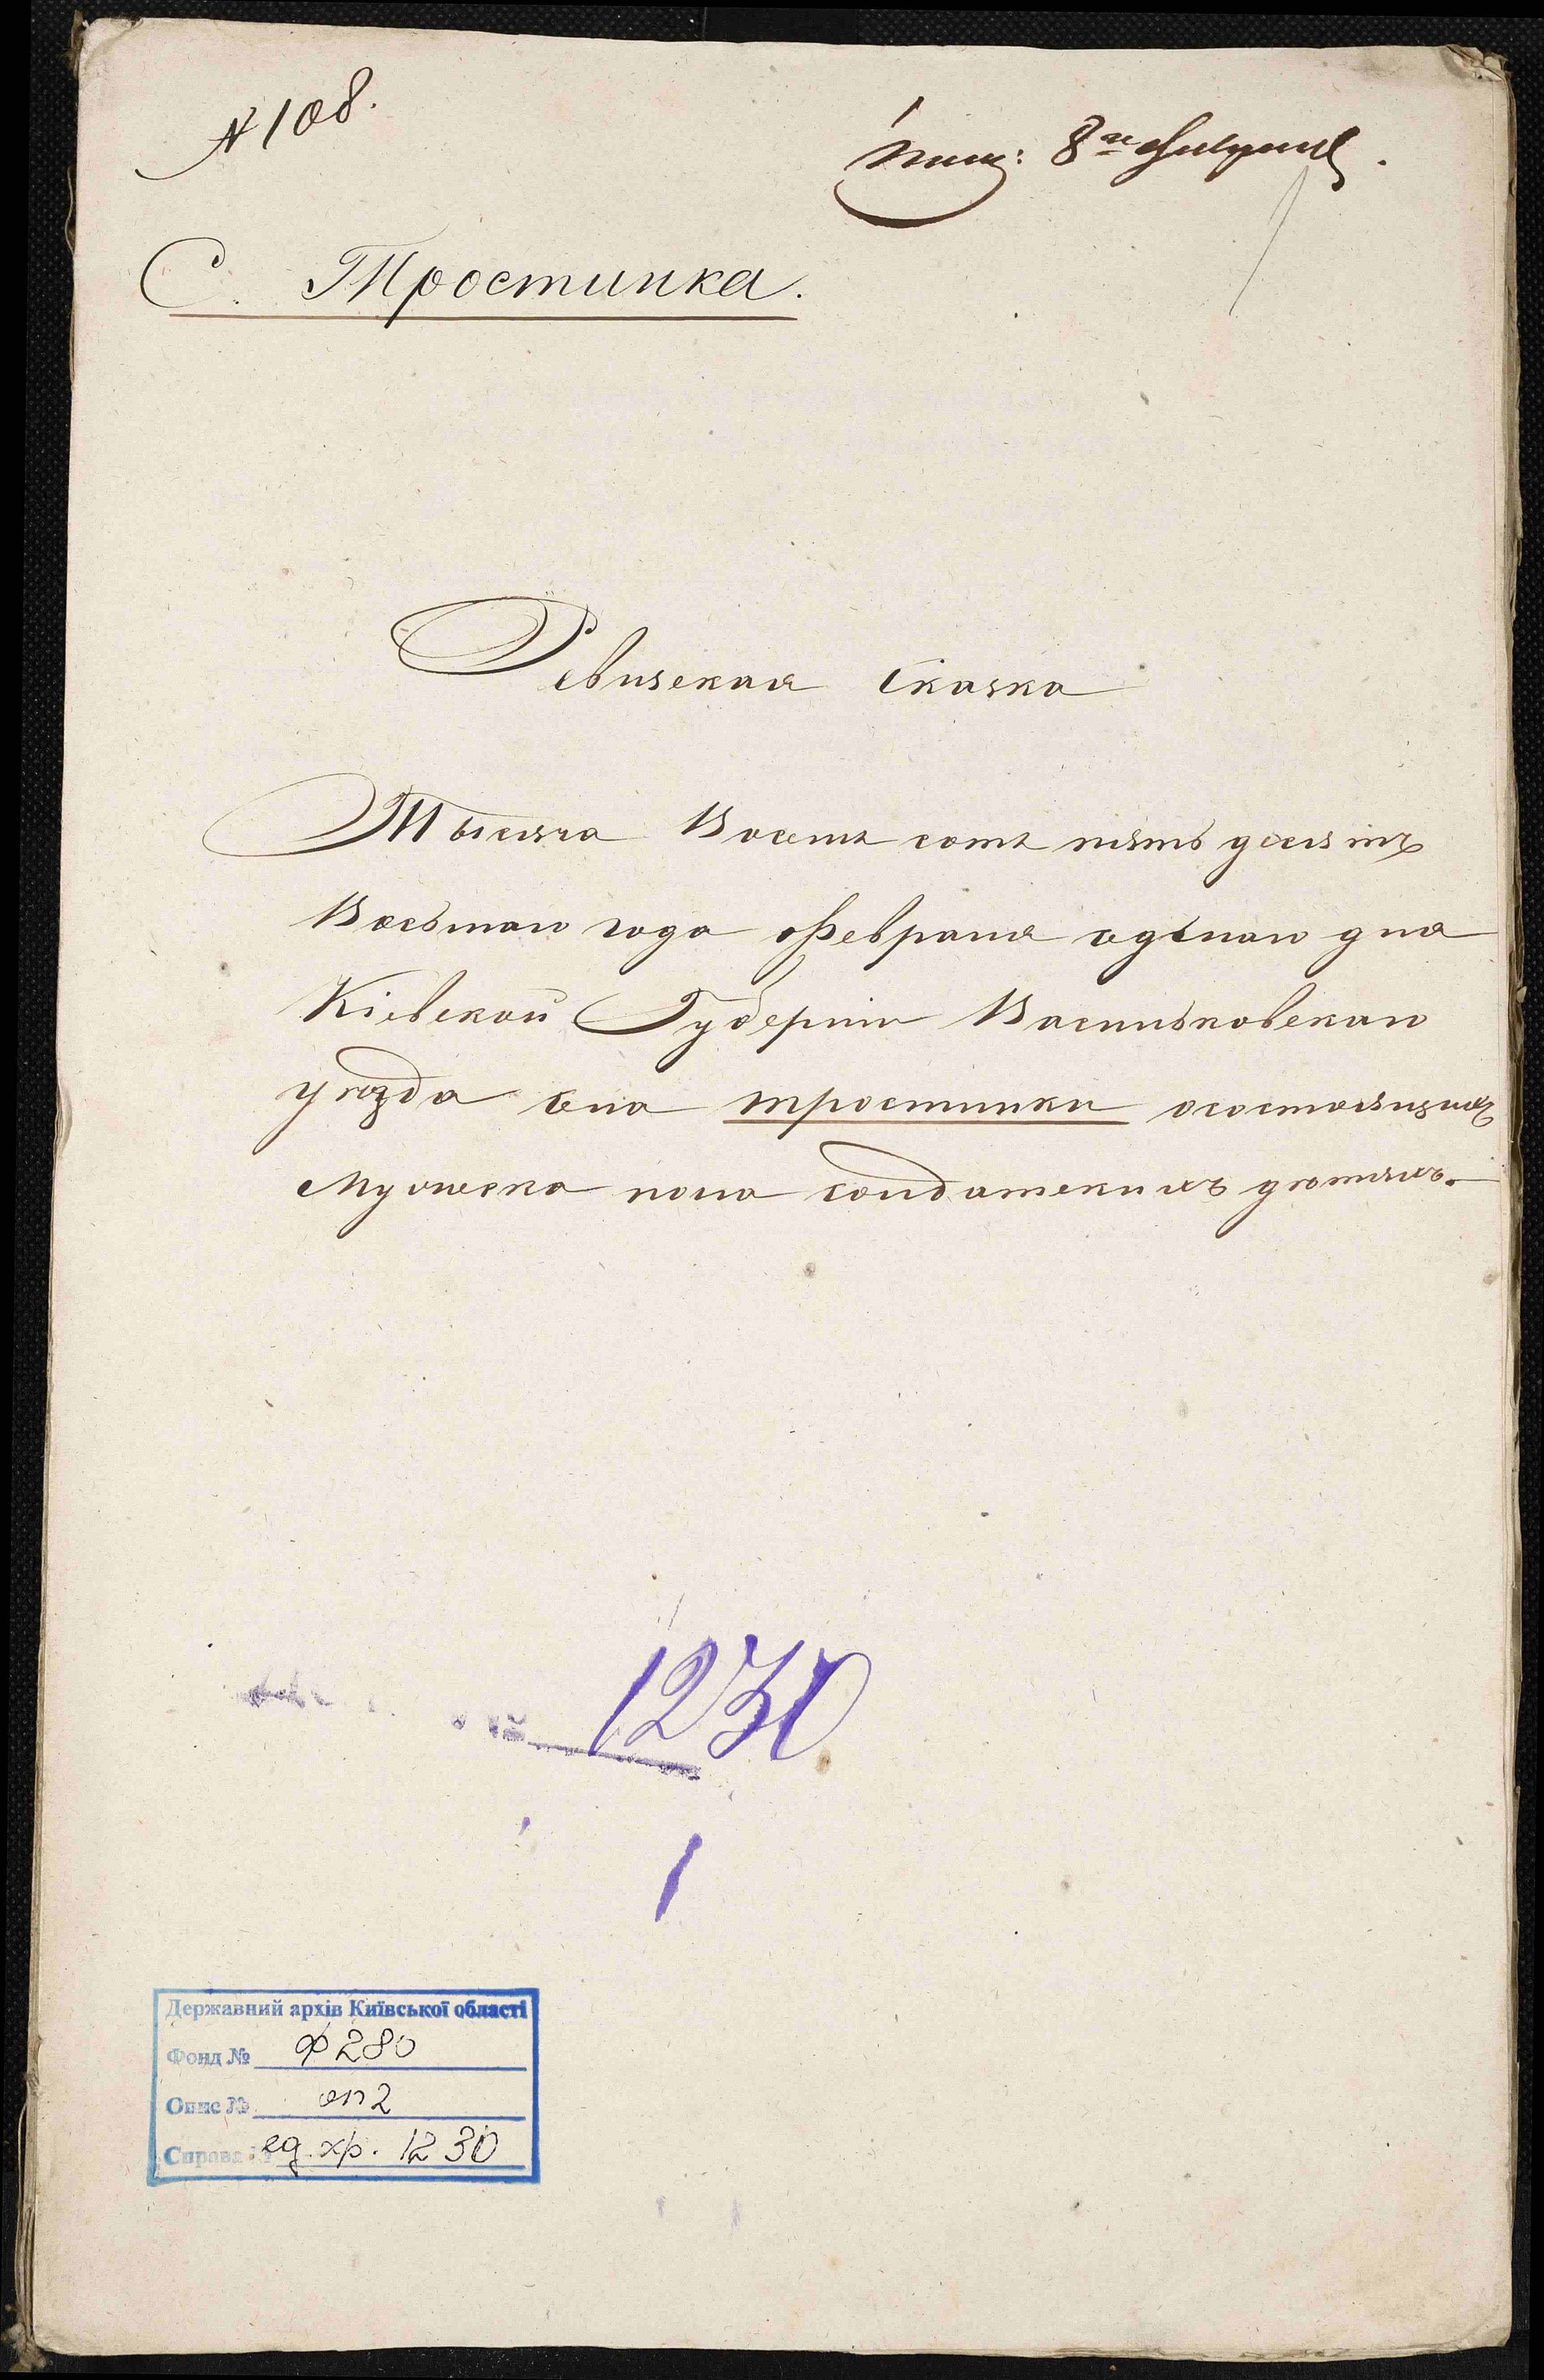 № 108.
8го февраля.
С. Тростинка.
Ревизская Сказка
Тысяча Восемь сотъ пять десятъ
Восьмаго года Февраля дня
Кіевской Губерніи Васильковскаго
уѣзда села тростинки осостоящихъ
Мужеска пола солдатскихъ дѣтяхъ.
1230
1
Державний архів Київської області
Фонд № ф 280
Опис № оп 2
Справа № ед. хр. 1230